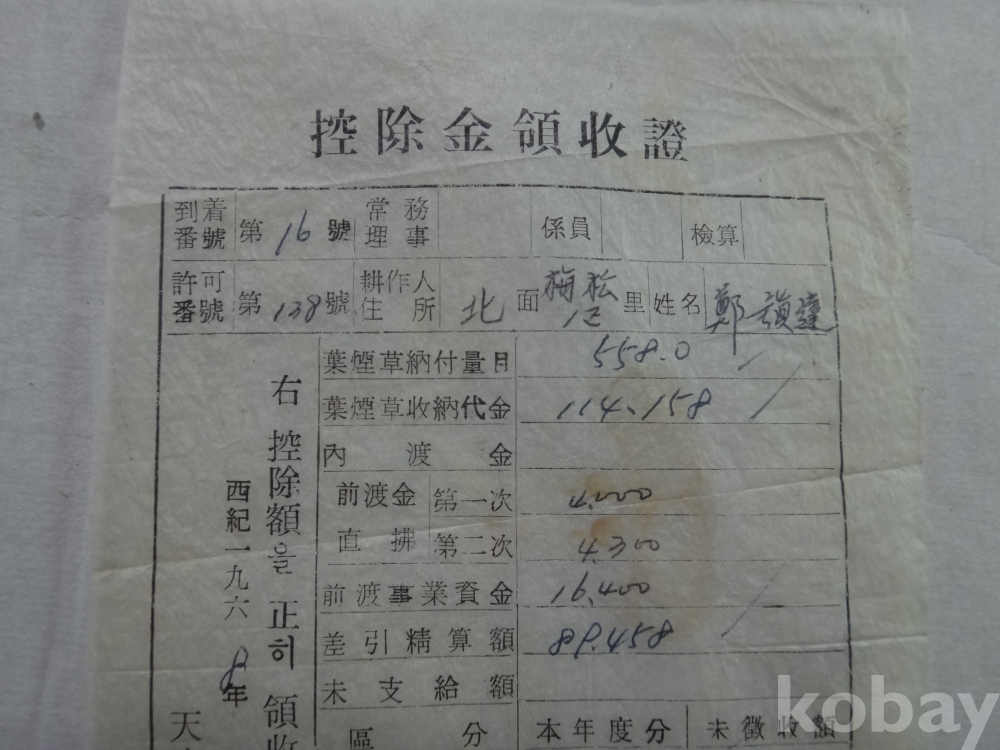 控除金領收證
到着番號 第 16 號 常務理事 係員 檢算
許可番號 第 138 號 耕作人住所 北 面 梅松 里 姓名 鄭
葉煙草納付量目 558.0
葉煙草收納代金 114,158
內渡金
前渡金直拂 第一次 4,000
第二次 4,300
前渡事業資金 16,400
差引精算額 89,458
未支給額
區分 本年度分 未徵收額
右控除額을正히領收
西紀一九六8年
天
kobay